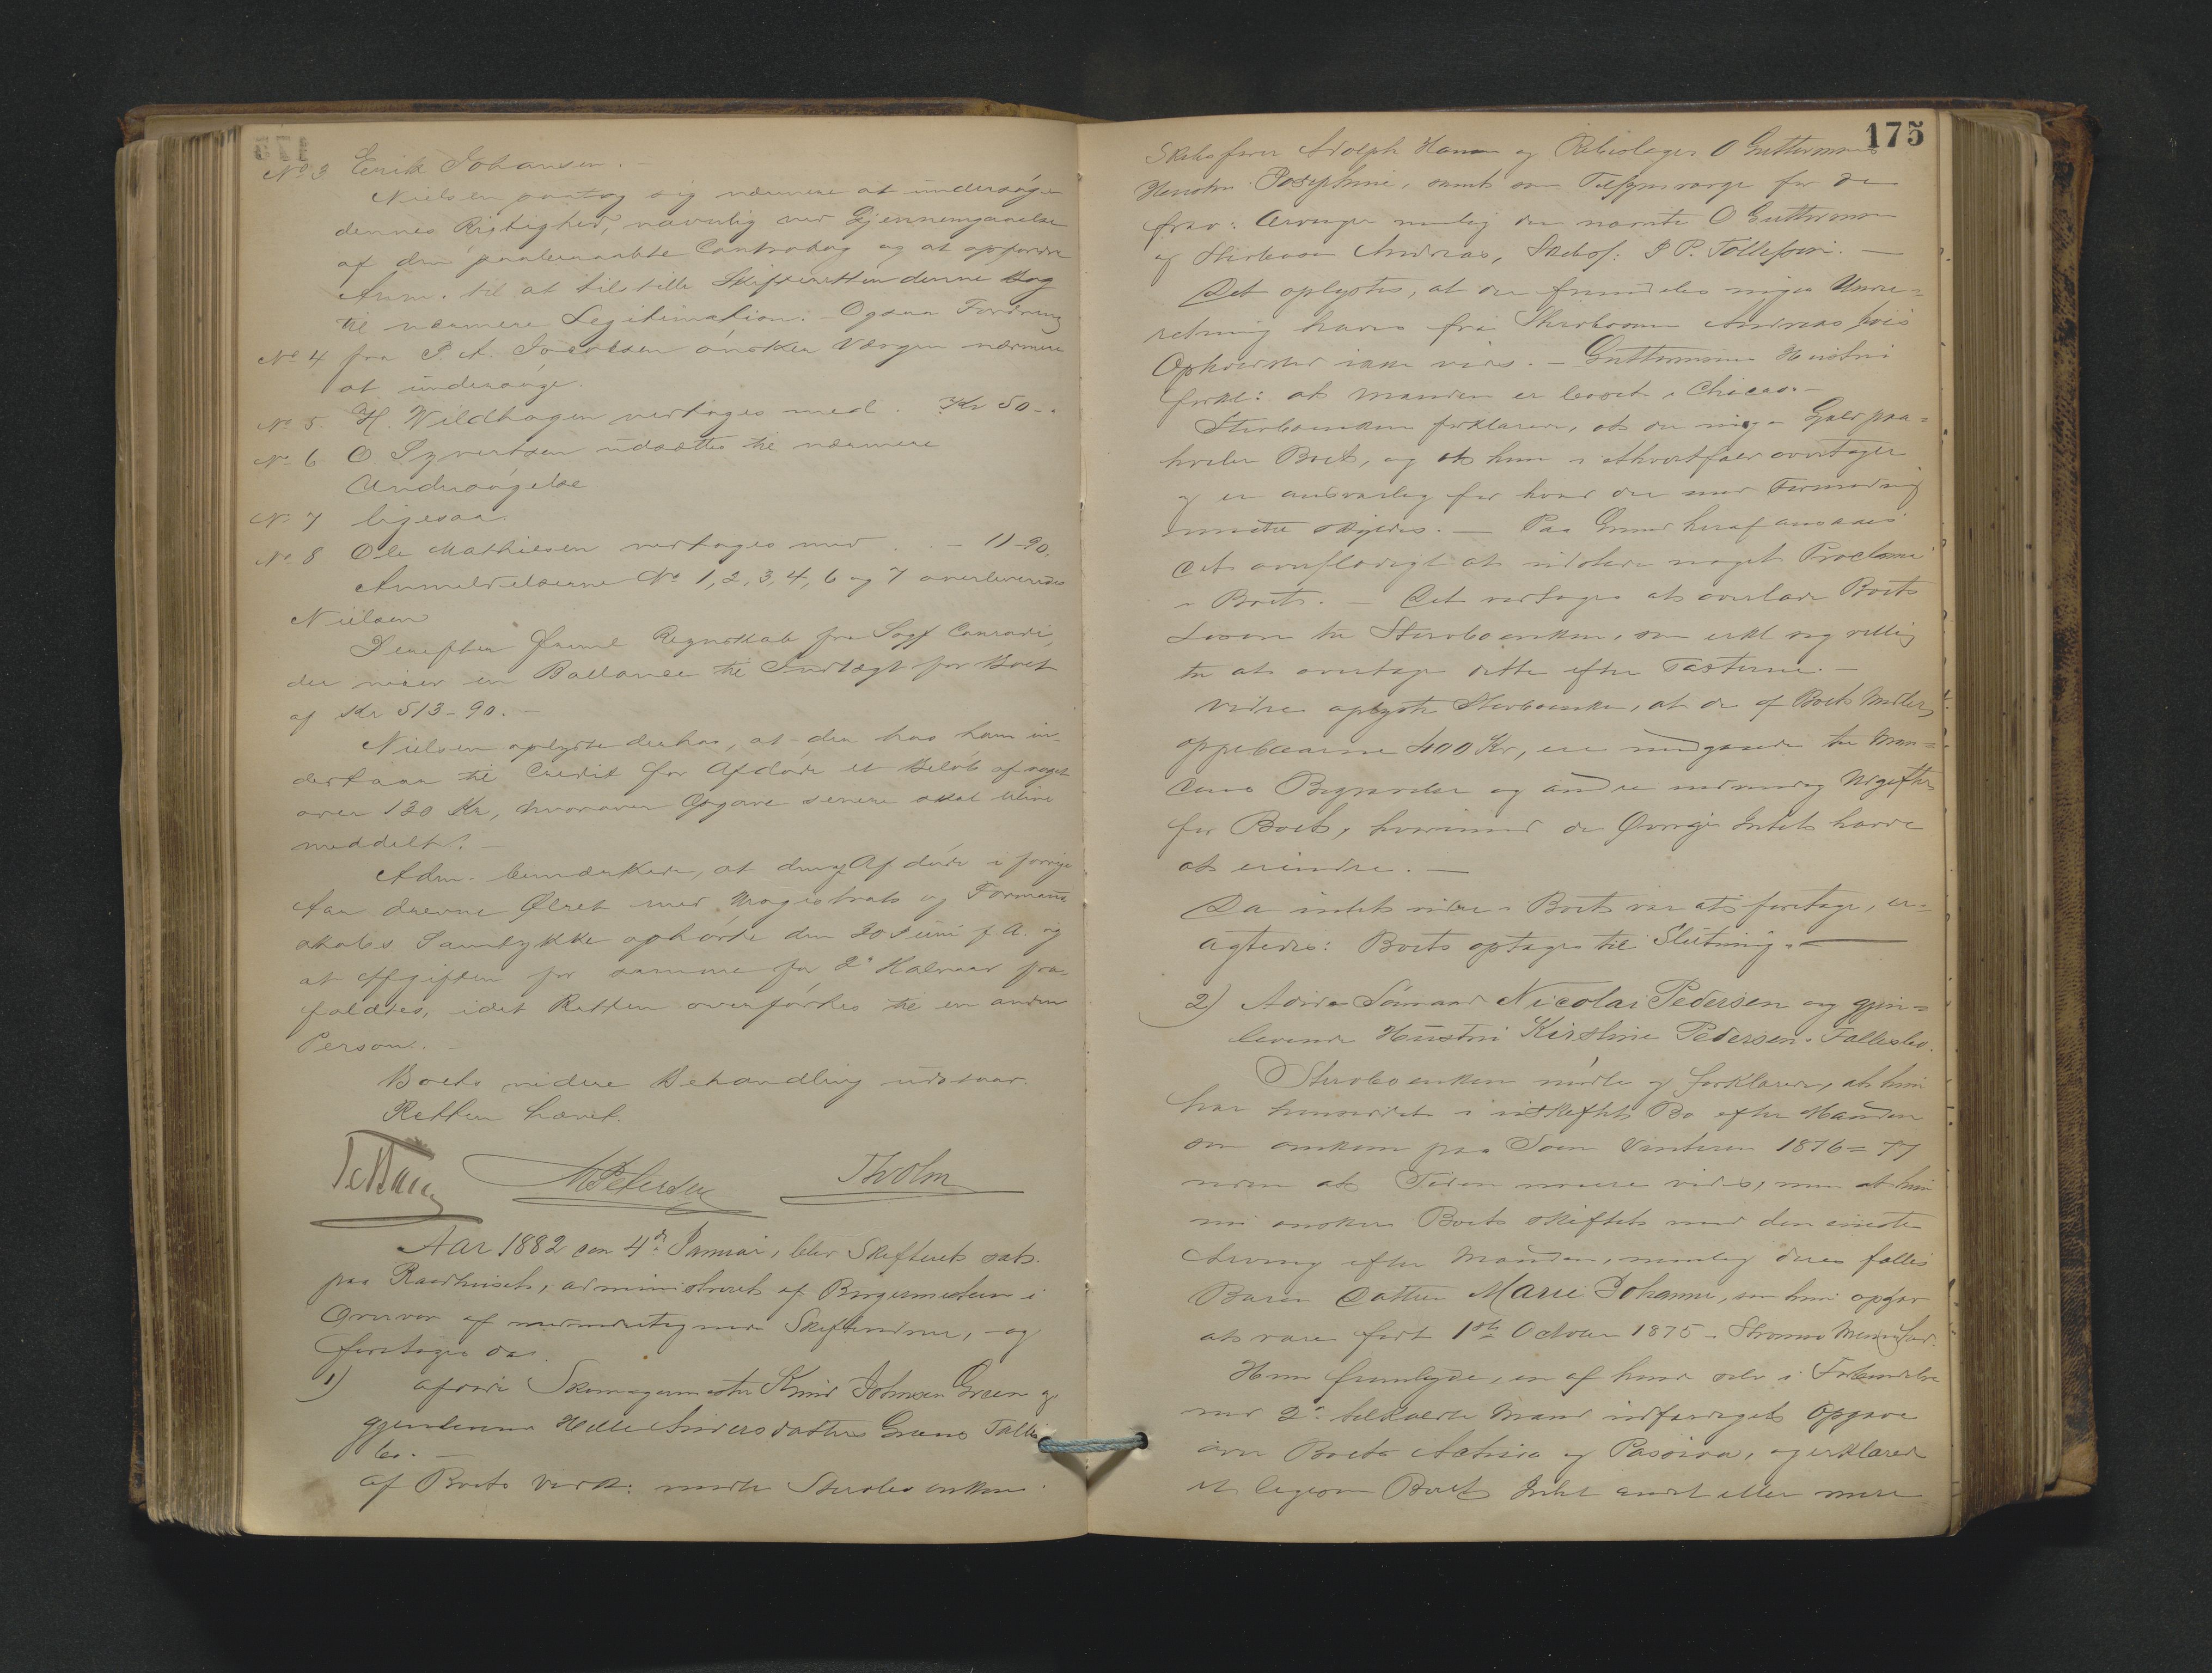 No 3 Erik Johansen. -
Nielsen paatog sig nærmere at undersøge
dennes Rigtighed, navnlig ved Gjennemgaaelse
af den paaberaabte Contrabog og at opfordre
Anm. til at tilstille Skifteretten denne Bog
til nærmere Legitimation. - Ogsaa Fordring
No 4 fra P. A. Jacobsen ønsker Værgen nærmere
at undersøge.
No 5. H. Wildhagen vedtages med . Kr 50 -.
No 6 O. Syvertsen udsættes til nærmere
Undersøgelse
No 7 ligesaa.
No 8 Ole Mathiesen vedtages med . . - 11-90.
Anmeldelserne No 1, 2, 3, 4, 6 og 7 overleveredes
Nielsen
Derefter Regnskab fra Sagf Conradi,
der viser en Ballance til Indtægt for Boet
af Kr 513-90. -
Nielsen oplyste derhos, at der hos ham in-
destaar til Credit for Afdøde et Beløb af noget
over 130 Kr, hvorover Opgave senere skal blive
meddelt. -
Adm. bemærkede, at den af Afdøde i forrige
Aar drevne Ølret med Magistrats og Formand
skabs Samtykke ophørte den 30 Juni f. A. og
at Afgiften for samme for 2det Halvaar fra-
faldtes, idet Retten overførtes til en anden
Person. -
Boets videre Behandling udsaaes.
Retten hævet.
M Petersen Th Olm
Aar 1882 den 4de Januar, blev Skifteret sat
paa Raadhuset, administreret af Borgermesteren i
Overvær af medundertegnede Skiftevidner, - og
foretoges da
1) afdøde Skomagermester Knud Johnsen Green og
gjenlevende Helle Andersdatter Greens Fælles
bo. -
Af Boets Vedk: mødte Sterboenken
Skibsfører Adolph Hansen og Rebslager O Guttormsens
Hustru Josephine, samt som Tilsynsværge for de
frav: Arvinger nemlig den nævnte O Guttormsen
og Sterbosøn Andreas, Skibsf: J P. Tollefsen. -
Det oplystes, at der fremdeles ingen Under=
retning haves fra Sterbosøn Andreas hvis
Opholdssted ikke vides. - Guttormsens Hustru
forkl: at Manden er bosat i Chicago -
Sterboenken forklarede, at der ingen Gjæld paa=
hviler Boet, og at hun i ethvert fald overtager
og er ansvarlig for hvad der mod Formodning
maatte skyldes. - Paa Grund heraf ansaaes
det overflødigt at udstede noget Proclama
i Boet. - Det vedtoges at overlade Boets
Løsøre til Sterboenken, som erkl sig villig
til at overtage dette efter Taxterne. -
Videre oplyste Sterboenken, at de af Boets Midler
oppebaarne 400 Kr, ere medgaaede til Man=
dens Begravelse og andre nødvendig Udgifter
for Boet, hvorimod de Øvrige Intet havde
at erindre. -
Da intet videre i Boet var at foretage, er=
agtedes: Boet optages til Slutning. -
2) Afdøde Sømand Nicolai Pedersen og gjen=
levende Hustru Kirstine Pedersens Fællesbo.
Sterboenken mødte og forklarede, at hun
har hensiddet i uskiftet Bo efter Manden
som omkom paa Søen Vinteren 1876=77
uden at Tiden nøiere vides, men at hun
nu ønsker Boet skiftet med den eneste
Arving efter Manden, nemlig deres fælles
Barn Datter Marie Johanne, som hun opgav
at være født 1ste October 1875 -
Hun fremlagde, en af hende selv i Forbindelse
med 2de tilkaldte Mænd udfærdiget Opgave
over Boets Activa og Passiva, og erklærede
at ligesom Boet Intet andet eller mere